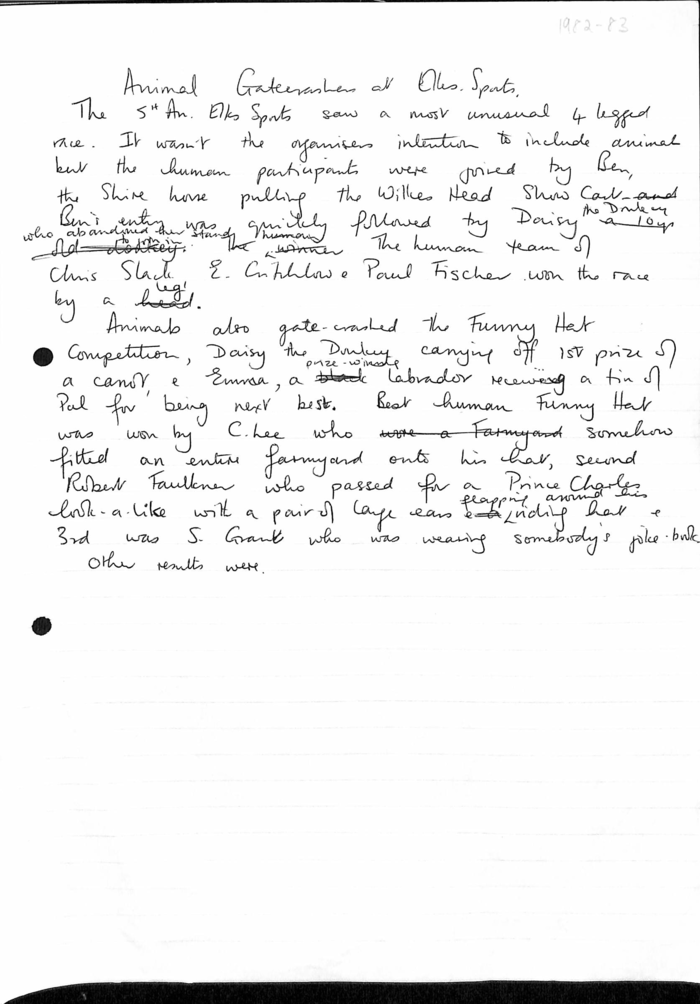 1982-83
Animal Gatecrashers at Elks. Sports.
The 5th An. Elks Sports saw a most unusual 4 legged
race. It wasn't the organisers intention to include animal
but the human participants were joined by Ben,
the Shire horse pulling the Wilkes Head Show Cart and
Ben's entry was quickly followed by Daisy the Donkey a 10yr
who abandoned their stand to join in
old donkey. The human winner The human team of
Chris Slack E. Critchlow & Paul Fischer won the race
by a leg! head.
Animals also gate-crashed the Funny Hat
Competition, Daisy the Donkey carrying off 1st prize of
a carrot, & Emma, a prize-winning black labrador receiving a tin of
Pal for being next best. Best human Funny Hat
was won by C. Lee who wore a Farmyard somehow
fitted an entire farmyard onto his hat, second
Robert Faulkner who passed for a Prince Charles
look-a-like with a pair of large ears flapping around his riding hat &
3rd was S. Grant who was wearing somebody's joke-book
Other results were.